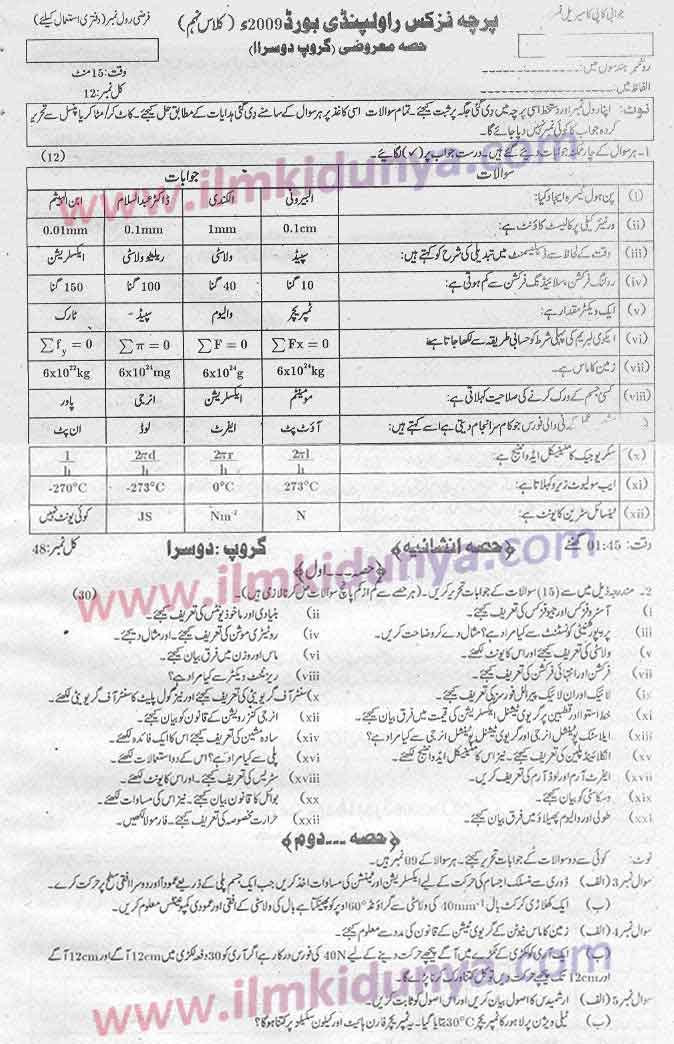 جوابی کاپی کا سیریل نمبر
پرچہ فزکس راولپنڈی بورڈ 2009ء (کلاس نہم)
فرضی رول نمبر (دفتری استعمال کیلئے)
حصہ معروضی (گروپ دوسرا)
رول نمبر ہندسوں میں:
وقت: 15 منٹ
الفاظ میں:
کل نمبر: 12
نوٹ: اپنا رول نمبر اور دستخط اسی پرچہ میں دی گئی جگہ پر ثبت کیجئے۔ تمام سوالات اسی کاغذ پر ہر سوال کے سامنے دی گئی ہدایات کے مطابق حل کیجئے۔ کاٹ کر/مٹا کر یا پنسل سے تحریر
کردہ جواب کا کوئی نمبر نہیں دیا جائے گا۔
1- ہر سوال کے چار ممکنہ جوابات دیئے گئے ہیں۔ درست جواب پر (✓) لگائیے۔ (12)
سوالات جوابات
(i) پن ہول کیمرہ ایجاد کیا: البیرونی الکندی ڈاکٹر عبدالسلام ابن الہیثم
(ii) ورنیئر کیلی پر کا لیسٹ کاؤنٹ ہے: 0.1cm 1mm 0.1mm 0.01mm
(iii) وقت کے لحاظ سے ڈسپلیسمنٹ میں تبدیلی کی شرح کو کہتے ہیں: سپیڈ ولاسٹی ریلیٹو ولاسٹی ایکسلریشن
(iv) رولنگ فرکشن، سلائیڈنگ فرکشن سے کم ہوتی ہے: 10 گنا 40 گنا 100 گنا 150 گنا
(v) ایک ویکٹر مقدار ہے: ٹمپریچر والیوم سپیڈ ٹارک
(vi) ایکوی لبریم کی پہلی شرط کو حسابی طریقہ سے لکھا جاتا ہے: ∑Fx = 0 ∑F = 0 ∑π = 0 ∑fy = 0
(vii) زمین کا ماس ہے: 6x10²⁴kg 6x10²⁴g 6x10²⁴mg 6x10²²kg
(viii) کسی جسم کے ورک کرنے کی صلاحیت کہلاتی ہے: مومینٹم ایکسلریشن انرجی پاور
والی فورس جو کام سرانجام دیتی ہے اسے کہتے ہیں: آؤٹ پٹ ایفرٹ لوڈ ان پٹ
(x) سکریو جیک کا مکینیکل ایڈوانٹیج ہے: 2πl/h 2πr/h 2πd/h 1/h
(xi) ایب سولیوٹ زیرو کہلاتا ہے: 273°C 0°C -273°C -270°C
(xii) ٹینسائل سٹرین کا یونٹ ہے: N Nm⁻² JS کوئی یونٹ نہیں
وقت: 01:45 گھنٹے ﴿حصہ انشائیہ﴾ گروپ: دوسرا کل نمبر: 48
﴿حصہ ۔۔۔ اول﴾
2- مندرجہ ذیل میں سے (15) سوالات کے جوابات تحریر کریں۔ (ہر حصے سے کم از کم پانچ سوالات حل کرنا لازمی ہیں) (30)
i آسٹرو فزکس اور جیو فزکس کی تعریف کیجئے۔ ii بنیادی اور ماخوذ یونٹس کی تعریف کیجئے۔
iii پروپورشنیلٹی کونسٹنٹ سے کیا مراد ہے؟ مثال دے کر وضاحت کریں۔ iv روٹیٹری موشن کی تعریف کیجئے۔ اور مثال دیجئے۔
v ولاسٹی کی تعریف کیجئے اور اس کا یونٹ لکھئے۔ vi ماس اور وزن میں فرق بیان کیجئے۔
vii فرکشن اور انتہائی فرکشن کی تعریف کیجئے۔ viii ریزلٹنٹ ویکٹر سے کیا مراد ہے؟
ix لائیک اور ان لائیک پیرالل فورسز کی تعریف کیجئے۔ x سنٹر آف گریویٹی کی تعریف کیجئے اور نیز گول پلیٹ کا سنٹر آف گریویٹی لکھئے۔
xi خط استوا اور قطبین پر گریوی ٹیشنل ایکسلریشن کی قیمت میں فرق بیان کیجئے۔ xii انرجی کنزرویشن کے قانون کو بیان کیجئے۔
xiii ایلاسٹک پوٹینشل انرجی اور گریوی ٹیشنل پوٹینشل انرجی سے کیا مراد ہے؟ xiv سادہ مشین کی تعریف کیجئے اس کا ایک فائدہ لکھئے۔
xv انکلائنڈ پلین کی تعریف کیجئے۔ نیز اس کا مکینیکل ایڈوانٹیج لکھئے۔ xvi پلی سے کیا مراد ہے؟ اس کے دو استعمالات لکھئے۔
xvii ایفرٹ آرم اور لوڈ آرم کی تعریف کریں۔ xviii سٹریس کی تعریف کیجئے۔ اور اس کا یونٹ لکھئے۔
xix وسکاسٹی کو بیان کیجئے۔ xx بوائل کا قانون بیان کیجئے۔ نیز اس کی مساوات لکھئے۔
xxi طولی اور والیوم پھیلاؤ میں فرق بیان کیجئے۔ xxii حرارت مخصوصہ کی تعریف کیجئے۔ فارمولا لکھیں۔
﴿حصہ ۔۔۔ دوم﴾
نوٹ: کوئی سے دو سوالات کے جوابات تحریر کیجئے۔ ہر سوال کے 09 نمبر ہیں۔
سوال نمبر 3 (الف) ڈوری سے منسلک اجسام کی حرکت کے لیے ایکسلریشن اور ٹینشن کی مساوات اخذ کریں جب ایک جسم پلی کے ذریعے عموداً اور دوسرا افقی سطح پر حرکت کرے۔
(ب) ایک کھلاڑی کرکٹ بال 40mm⁻¹ کی ولاسٹی سے گراؤنڈ 60° اوپر کو پھینکتا ہے بال کی ولاسٹی کے افقی اور عمودی کمپوننٹس معلوم کریں۔
سوال نمبر 4 (الف) زمین کا ماس نیوٹن کے گریوی ٹیشن کے قانون کی مدد سے معلوم کریں۔
(ب) ایک آری کو لکڑی کے ٹکڑے میں آگے پیچھے حرکت دینے کے لیے 40N کی فورس درکار ہے اگر آری کو 30 دفعہ لکڑی میں 12cm آگے اور 12cm آگے
اور 12cm تک پیچھے حرکت دیں تو کل کتنا ورک کرنا پڑے گا۔
سوال نمبر 5 (الف) ارشمیدس کا اصول بیان کریں اور اس اصول کو ثابت کریں۔
(ب) ٹیلی ویژن پر لاہور کا ٹمپریچر 30°C بتایا گیا۔ یہ ٹمپریچر فارن ہائیٹ اور کیلون سکیلز پر کتنا ہو گا؟
www.ilmkidunya.com
www.ilmkidunya.com
www.ilmkidunya.com